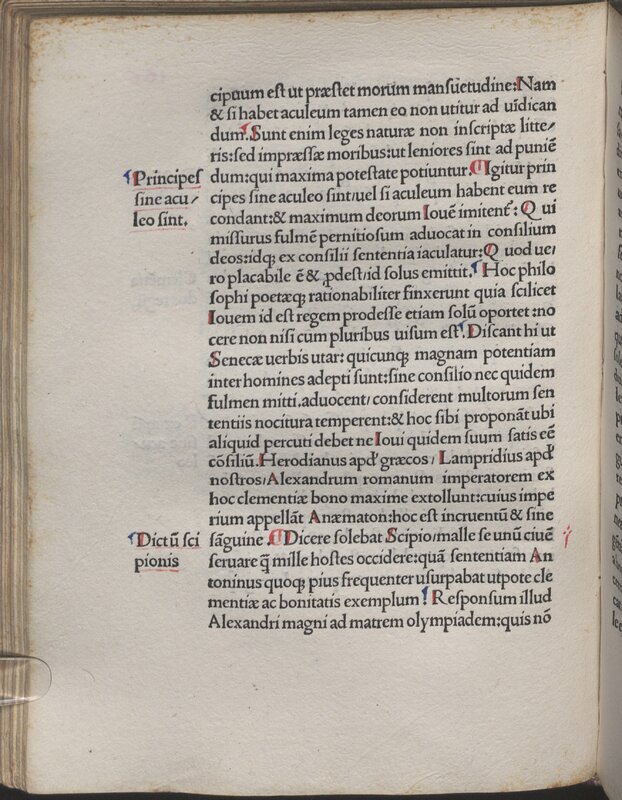 cipuum est ut præstet morum mansuetudine: Nam
& si habet aculeum tamen eo non utitur ad uidican
dum. Sunt enim leges naturæ non inscriptæ litte/
ris: sed impressæ moribus: ut leniores sint ad puniē
dum: qui maxima potestate potiuntur. Igitur prin
cipes sine aculeo sint/ uel si aculeum habent eum re
condant: & maximum deorum Iouē imitent᷑: Qui
missurus fulmē pernitiosum aduocat in consilium
deos: idq; ex consilii sententia iaculatur: Quod ue/
ro placabile ē & ꝓdest/ id solus emittit. Hoc philo
sophi poetæq; rationabiliter finxerunt quia scilicet
Iouem id est regem prodesse etiam solū oportet: no
cere non nisi cum pluribus uisum est. Discant hi ut
Senecæ uerbis utar: quicunq; magnam potentiam
inter homines adepti sunt: sine consilio nec quidem
fulmen mitti. aduocent/ considerent multorum sen
tentiis nocitura temperent: & hoc sibi proponāt ubi
aliquid percuti debet ne Ioui quidem suum satis eē
cōsiliū. Herodianus apđ græcos/ Lampridius apđ
nostros/ Alexandrum romanum imperatorem ex
hoc clementiæ bono maxime extollunt: cuius impe
rium appellāt Anæmaton: hoc est incruentū & sine
sāguine. Dicere solebat Scipio/ malle se unū ciuē
seruare q̄ mille hostes occidere: quā sententiam An
toninus quoq; pius frequenter usurpabat utpote cle
mentiæ ac bonitatis exemplum! Responsum illud
Alexandri magni ad matrem olympiadem: quis nō
Principes
sine acu/
leo sint.
Dictū sci
pionis